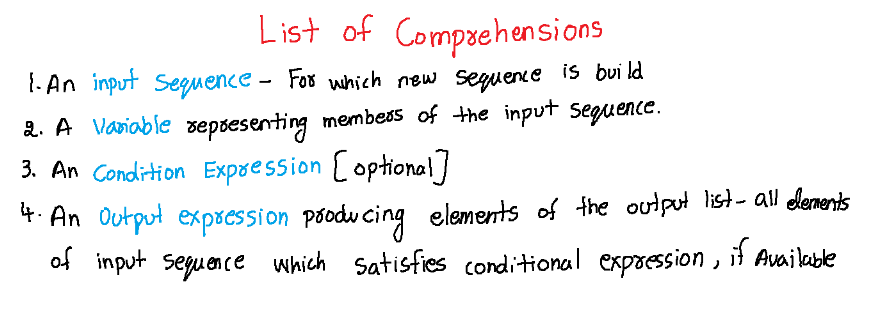 List of Comprehensions
1. An input Sequence - For which new sequence is build
2. A Variable representing members of the input sequence.
3. An Condition Expression [optional]
4. An Output expression producing elements of the output list - all elements
of input sequence which satisfies conditional expression, if Available